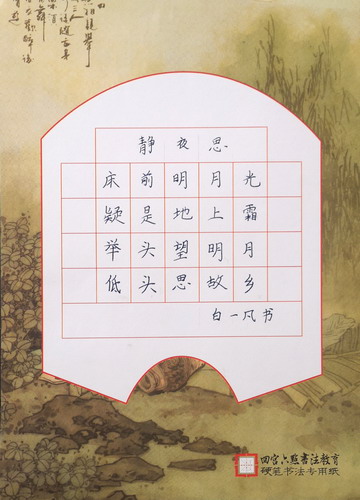 静夜思
床前明月光
疑是地上霜
举头望明月
低头思故乡
白一凡书
四宫六点书法教育
硬笔书法专用纸